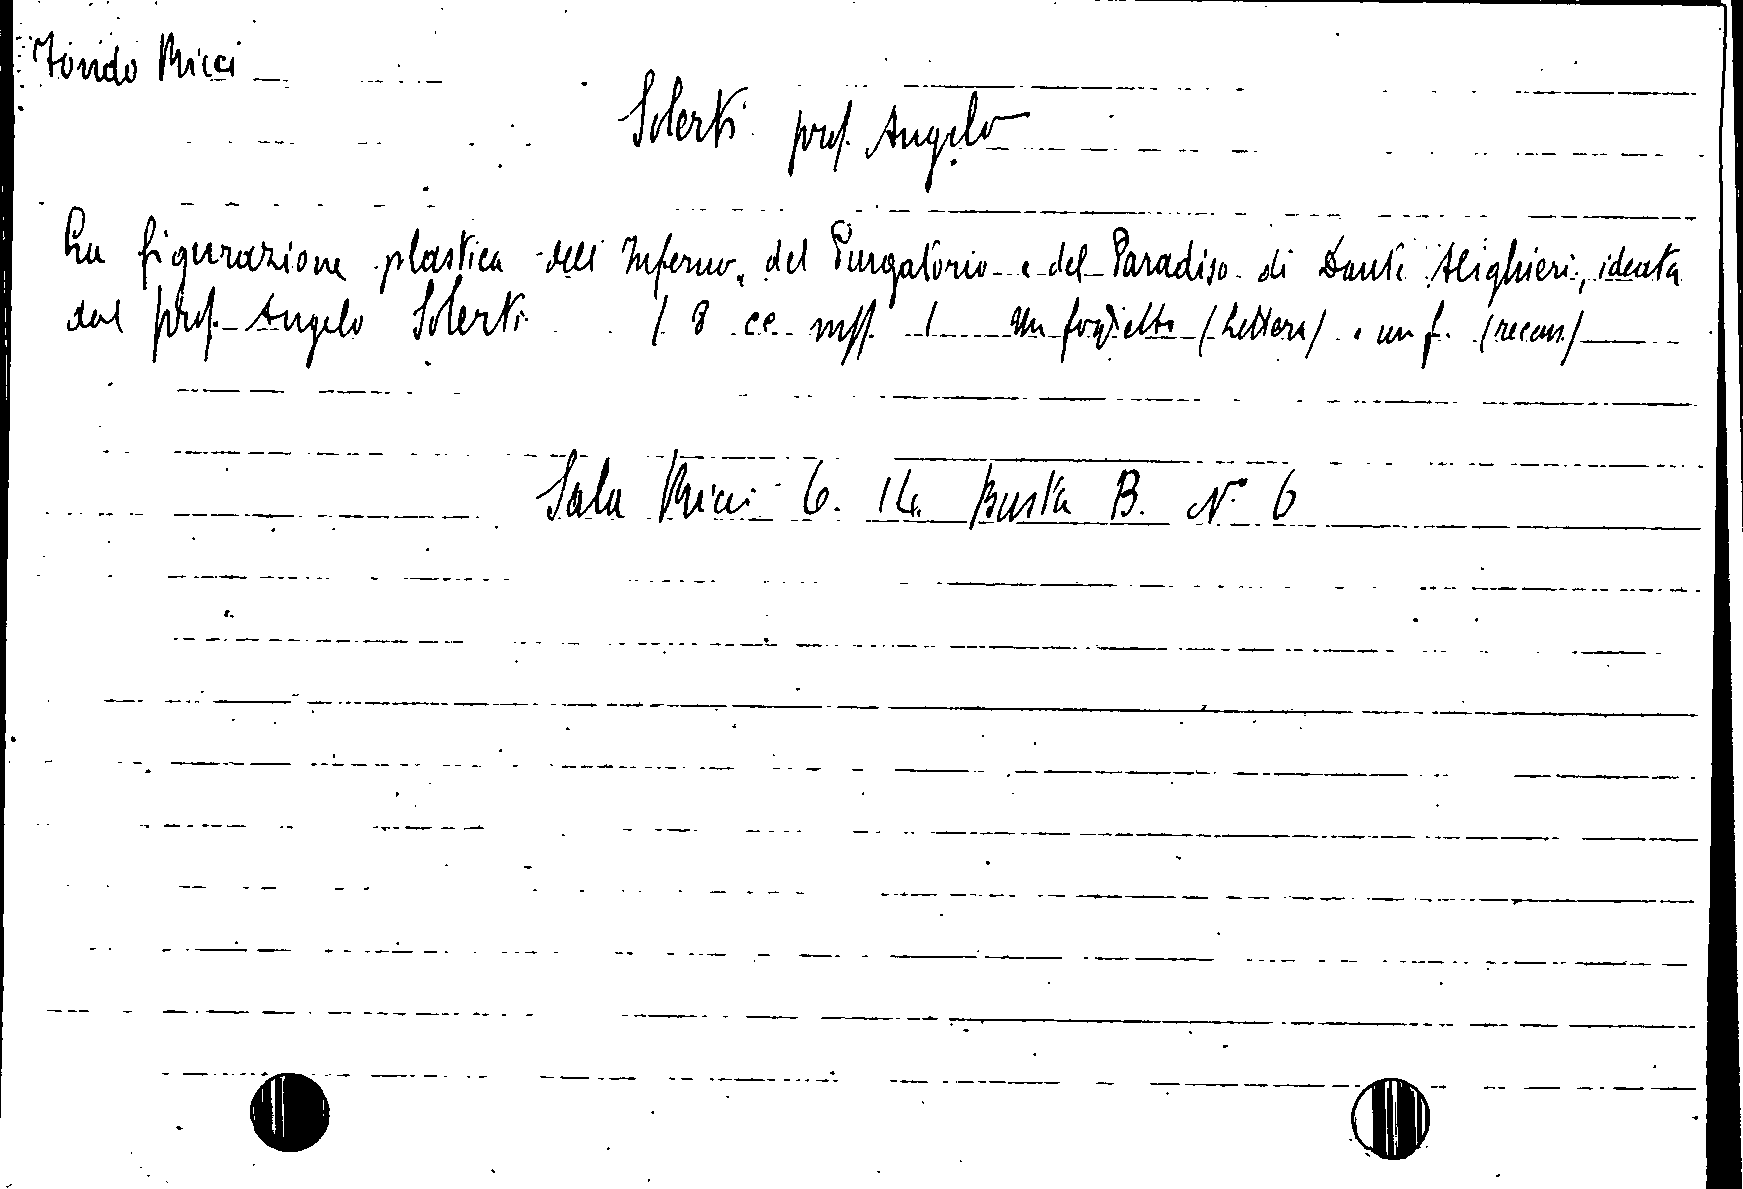 Fondo Ricci
Solerti prof. Angelo
La figurazione plastica dell'Inferno, del Purgatorio e del Paradiso di Dante Alighieri, ideata
dal prof. Angelo Solerti ( 8 cc. mss. ) Un foglietto (lettera) e un f. (recens.)
Sala Ricci 6. 14. Busta B. N° 6